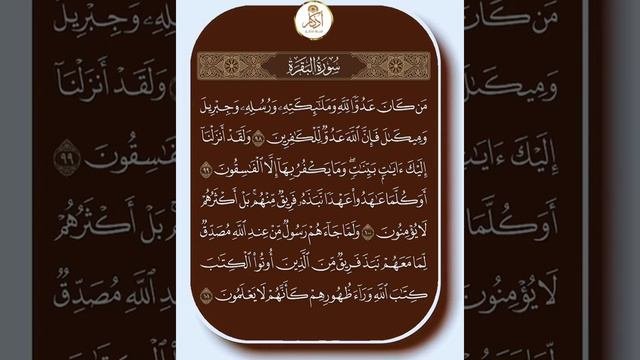 أذكار
سُورَةُ البَقَرَةِ
مَن كَانَ عَدُوًّا لِّلَّهِ وَمَلَٰٓئِكَتِهِۦ وَرُسُلِهِۦ وَجِبْرِيلَ
وَمِيكَىٰلَ فَإِنَّ ٱللَّهَ عَدُوٌّ لِّلْكَٰفِرِينَ ٩٨ وَلَقَدْ أَنزَلْنَآ
إِلَيْكَ ءَايَٰتٍۭ بَيِّنَٰتٍۖ وَمَا يَكْفُرُ بِهَآ إِلَّا ٱلْفَٰسِقُونَ ٩٩
أَوَكُلَّمَا عَٰهَدُوا۟ عَهْدًا نَّبَذَهُۥ فَرِيقٌ مِّنْهُمۚ بَلْ أَكْثَرُهُمْ
لَا يُؤْمِنُونَ ١٠٠ وَلَمَّا جَآءَهُمْ رَسُولٌ مِّنْ عِندِ ٱللَّهِ مُصَدِّقٌ
لِّمَا مَعَهُمْ نَبَذَ فَرِيقٌ مِّنَ ٱلَّذِينَ أُوتُوا۟ ٱلْكِتَٰبَ
كِتَٰبَ ٱللَّهِ وَرَآءَ ظُهُورِهِمْ كَأَنَّهُمْ لَا يَعْلَمُونَ ١٠١